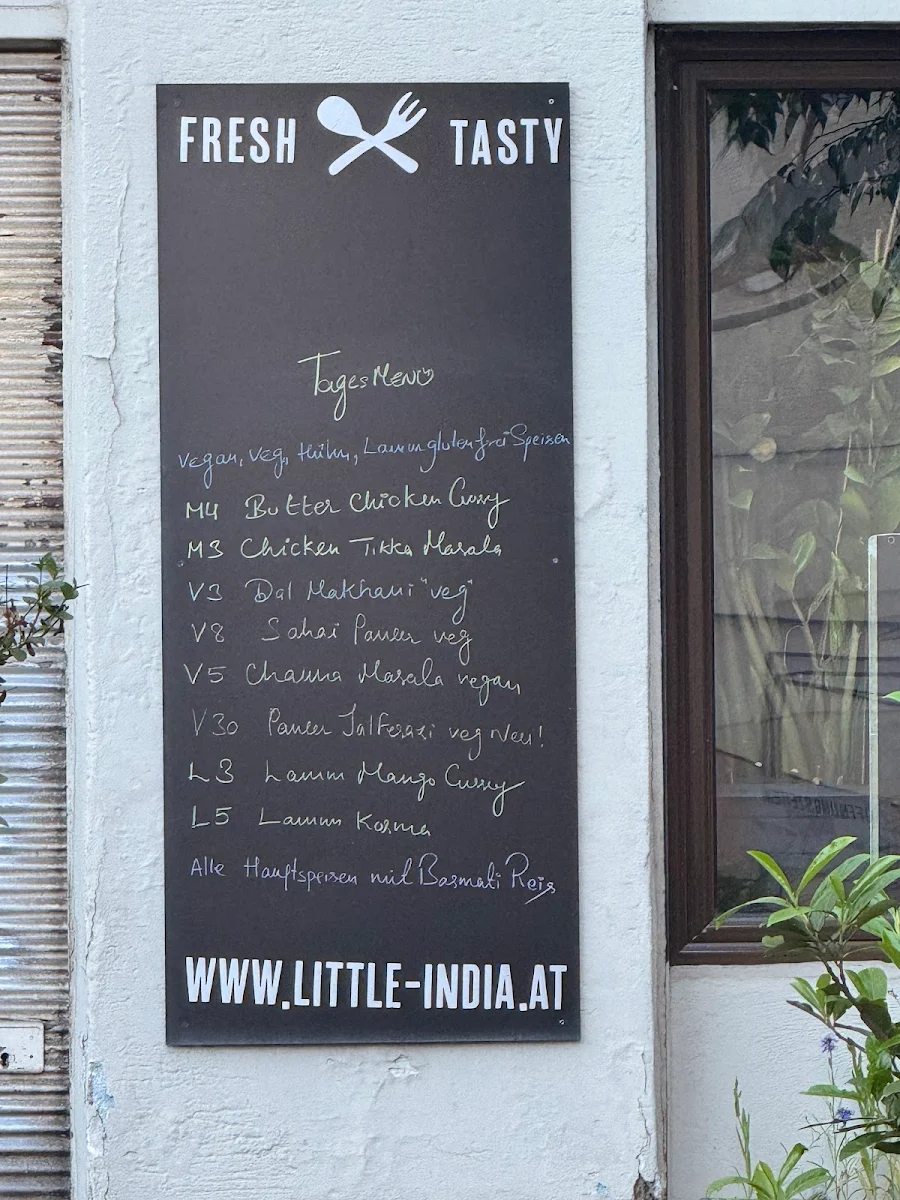 FRESH TASTY
Tages Menü
Vegan, Veg, Huhn, Lamm glutenfrei Speisen
M4 Butter Chicken Curry
M3 Chicken Tikka Masala
V3 Dal Makhani "veg"
V8 Sahai Paneer veg
V5 Channa Masala vegan
V30 Paneer Jalferezi veg Neu!
L3 Lamm Mango Curry
L5 Lamm Korma
Alle Hauptspeisen mit Basmati Reis
WWW.LITTLE-INDIA.AT